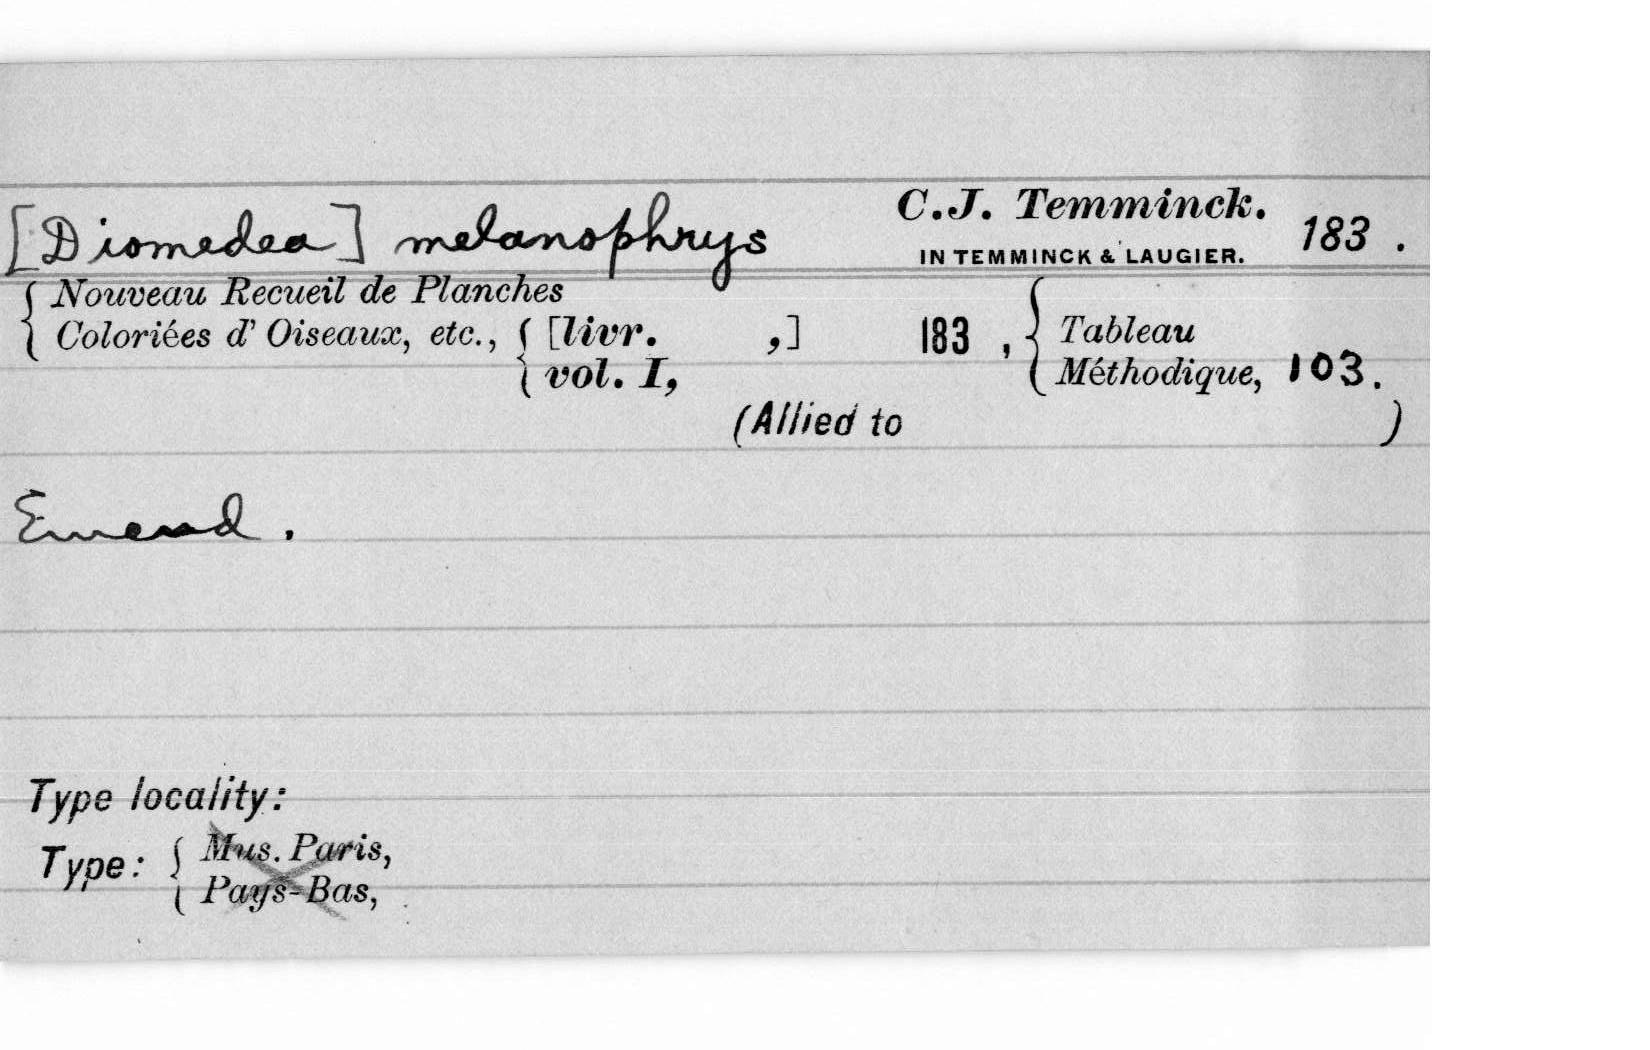 [Diomedea] melanophrys C.J. Temminck. 183 .
IN TEMMINCK & LAUGIER.
{ Nouveau Recueil de Planches
Coloriées d' Oiseaux, etc., { [livr. ,] 183 , { Tableau
vol. I, Méthodique, 103.
(Allied to )
Emend.
Type locality:
Type: { Mus. Paris,
Pays-Bas,